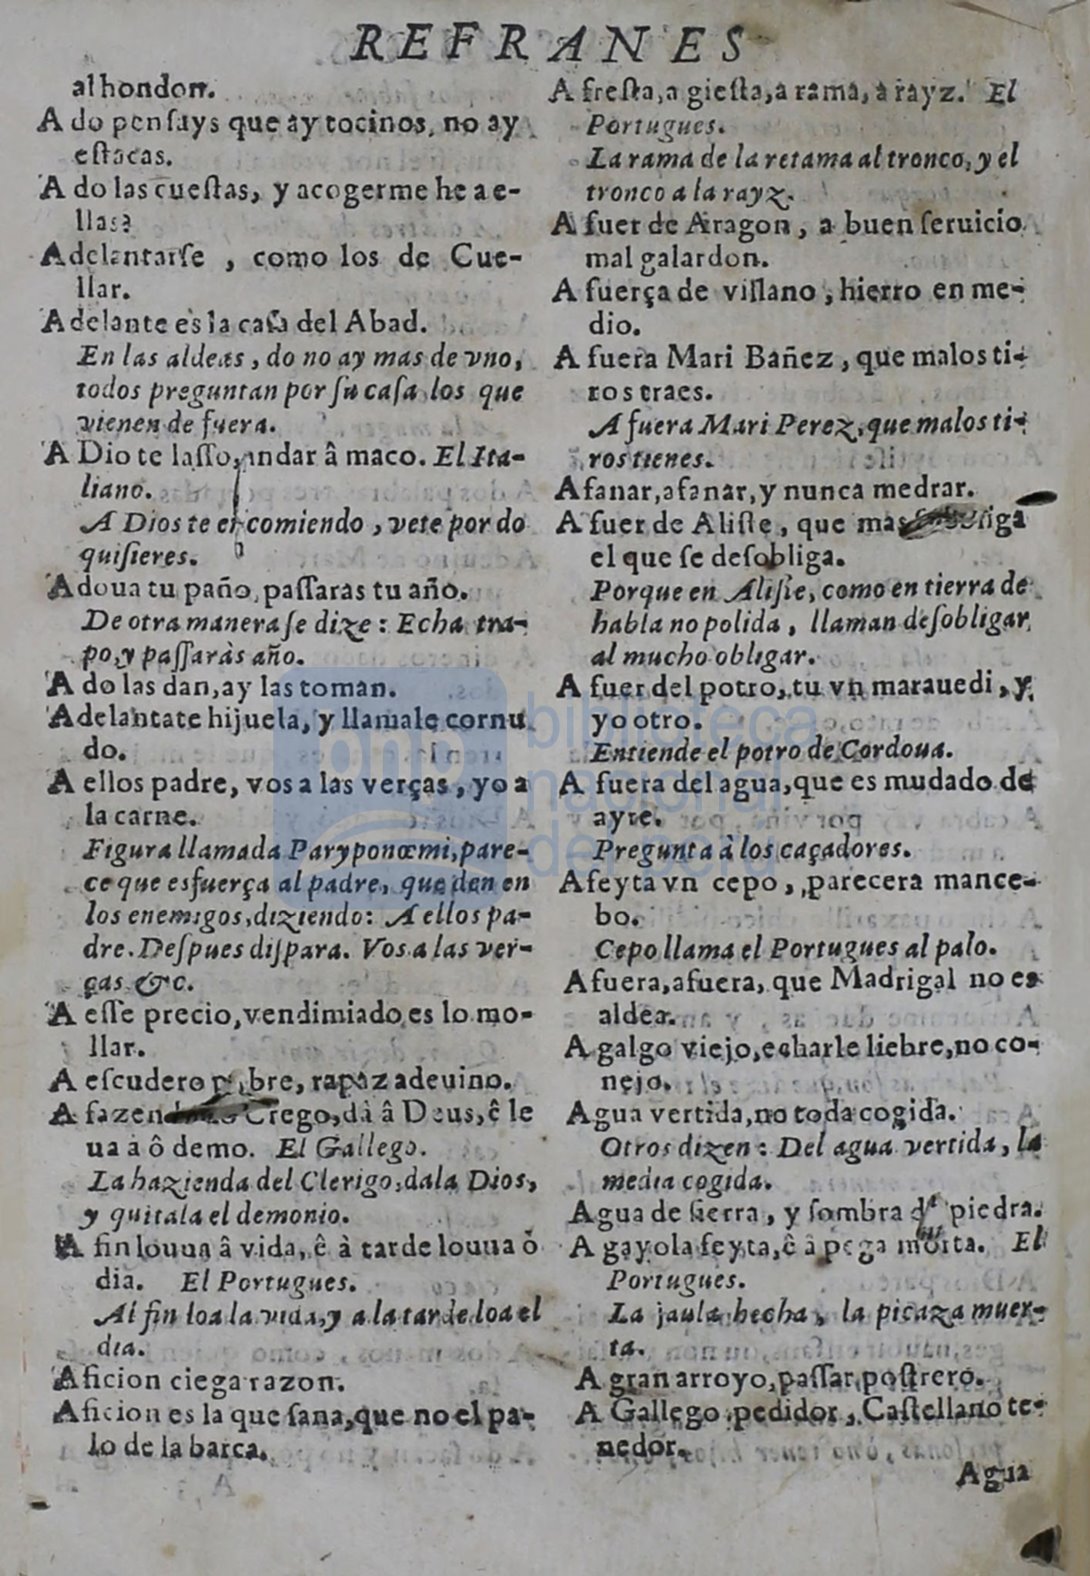 REFRANES
al hondon.
A do pensays que ay tocinos, no ay
estacas.
A do las cuestas, y acogerme he a e-
llas?
Adelantarse , como los de Cue-
llar.
Adelante es la casa del Abad.
En las aldeas , do no ay mas de vno,
todos preguntan por su casa los que
vienen de fuera.
A Dio te lasso, andar â maco. El Ita-
liano.
A Dios te encomiendo , vete por do
quisieres.
Adoua tu paño, passaras tu año.
De otra manera se dize : Echa tra-
po, y passaràs año.
A do las dan, ay las toman.
Adelantate hijuela, y llamale cornu
do.
A ellos padre, vos a las verças, yo a
la carne.
Figura llamada Paryponœmi, pare-
ce que esfuerça al padre, que den en
los enemigos, diziendo: A ellos pa-
dre. Despues dispara. Vos a las ver-
ças &c.
A esse precio, vendimiado es lo mo-
llar.
A escudero pobre, rapaz adeuino.
A Crego, dà â Deus, ê le
ua à ô demo. El Gallego.
La hazienda del Clerigo, dala Dios,
y quitala el demonio.
A fin louua â vida, ê à tarde louua ò
dia. El Portugues.
Al fin loa la vida, y a la tarde loa el
dia.
Aficion ciega razon.
Aficion es la que sana, que no el pa-
lo de la barca.
A fresta, a giesta, a rama, a rayz. El
Portugues.
La rama de la retama al tronco, y el
tronco a la rayz.
A fuer de Aragon , a buen seruicio
mal galardon.
A fuerça de villano , hierro en me-
dio.
A fuera Mari Bañez , que malos ti-
ros traes.
A fuera Mari Perez, que malos ti-
ros tienes.
Afanar, afanar, y nunca medrar.
A fuer de Aliste , que mas
el que se desobliga.
Porque en Aliste, como en tierra de
habla no polida , llaman desobligar
al mucho obligar.
A fuer del potro, tu vn marauedi , y
yo otro.
Entiende el potro de Cordoua.
A fuera del agua, que es mudado de
ayre.
Pregunta à los caçadores.
Afeyta vn cepo , parecera mance-
bo.
Cepo llama el Portugues al palo.
Afuera, afuera, que Madrigal no es
aldea.
A galgo viejo, echarle liebre, no co-
nejo.
Agua vertida, no toda cogida.
Otros dizen : Del agua vertida , la
media cogida.
Agua de sierra , y sombra de piedra.
A gayola feyta, ê a pega morta. El
Portugues.
La jaula hecha , la picaza muer-
ta.
A gran arroyo, passar postrero.
A Gallego pedidor , Castellano te-
nedor.
Agua
biblioteca
nacional
del perú